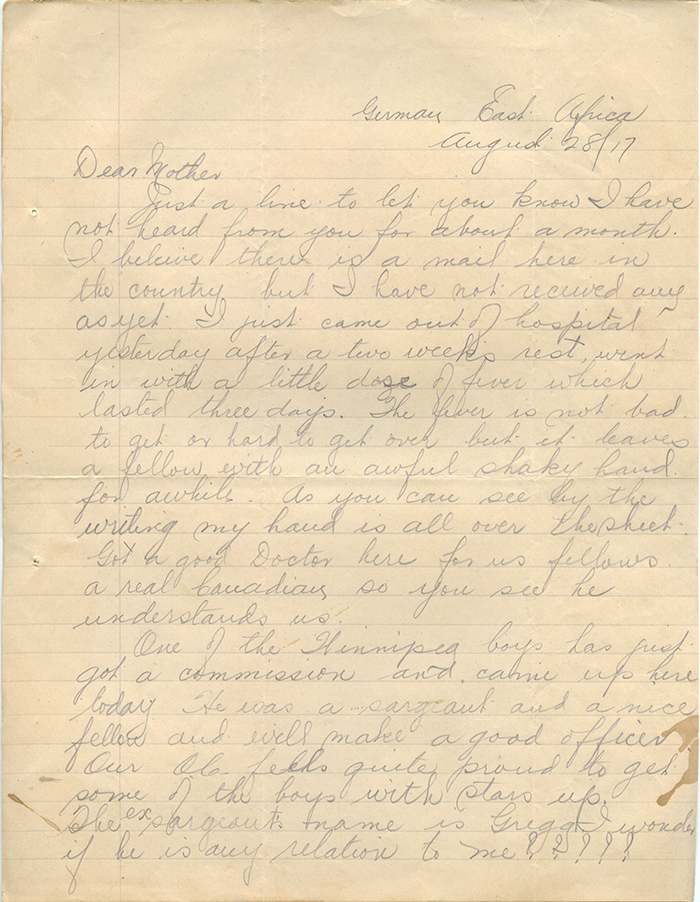 German East Africa
August 28/17
Dear Mother
Just a line to let you know I have
not heard from you for about a month.
I beleive there is a mail here in
the country but I have not received any
as yet. I just came out of hospital
yesterday after a two weeks rest, went
in with a little dose of fever which
lasted three days. The fever is not bad
to get or hard to get over but it leaves
a fellow with an awful shaky hand
for awhile. As you can see by the
writing my hand is all over the sheet.
Got a good Doctor here for us fellows
a real Canadian, so you see he
understands us.
One of the Winnipeg boys has just
got a commission and came up here
today He was a sargeant and a nice
fellow and will make a good officer
Our O.C. feels quite proud to get
some of the boys with stars up.
The ex sargeant's name is Gregg I wonder
if he is any relation to me ?????